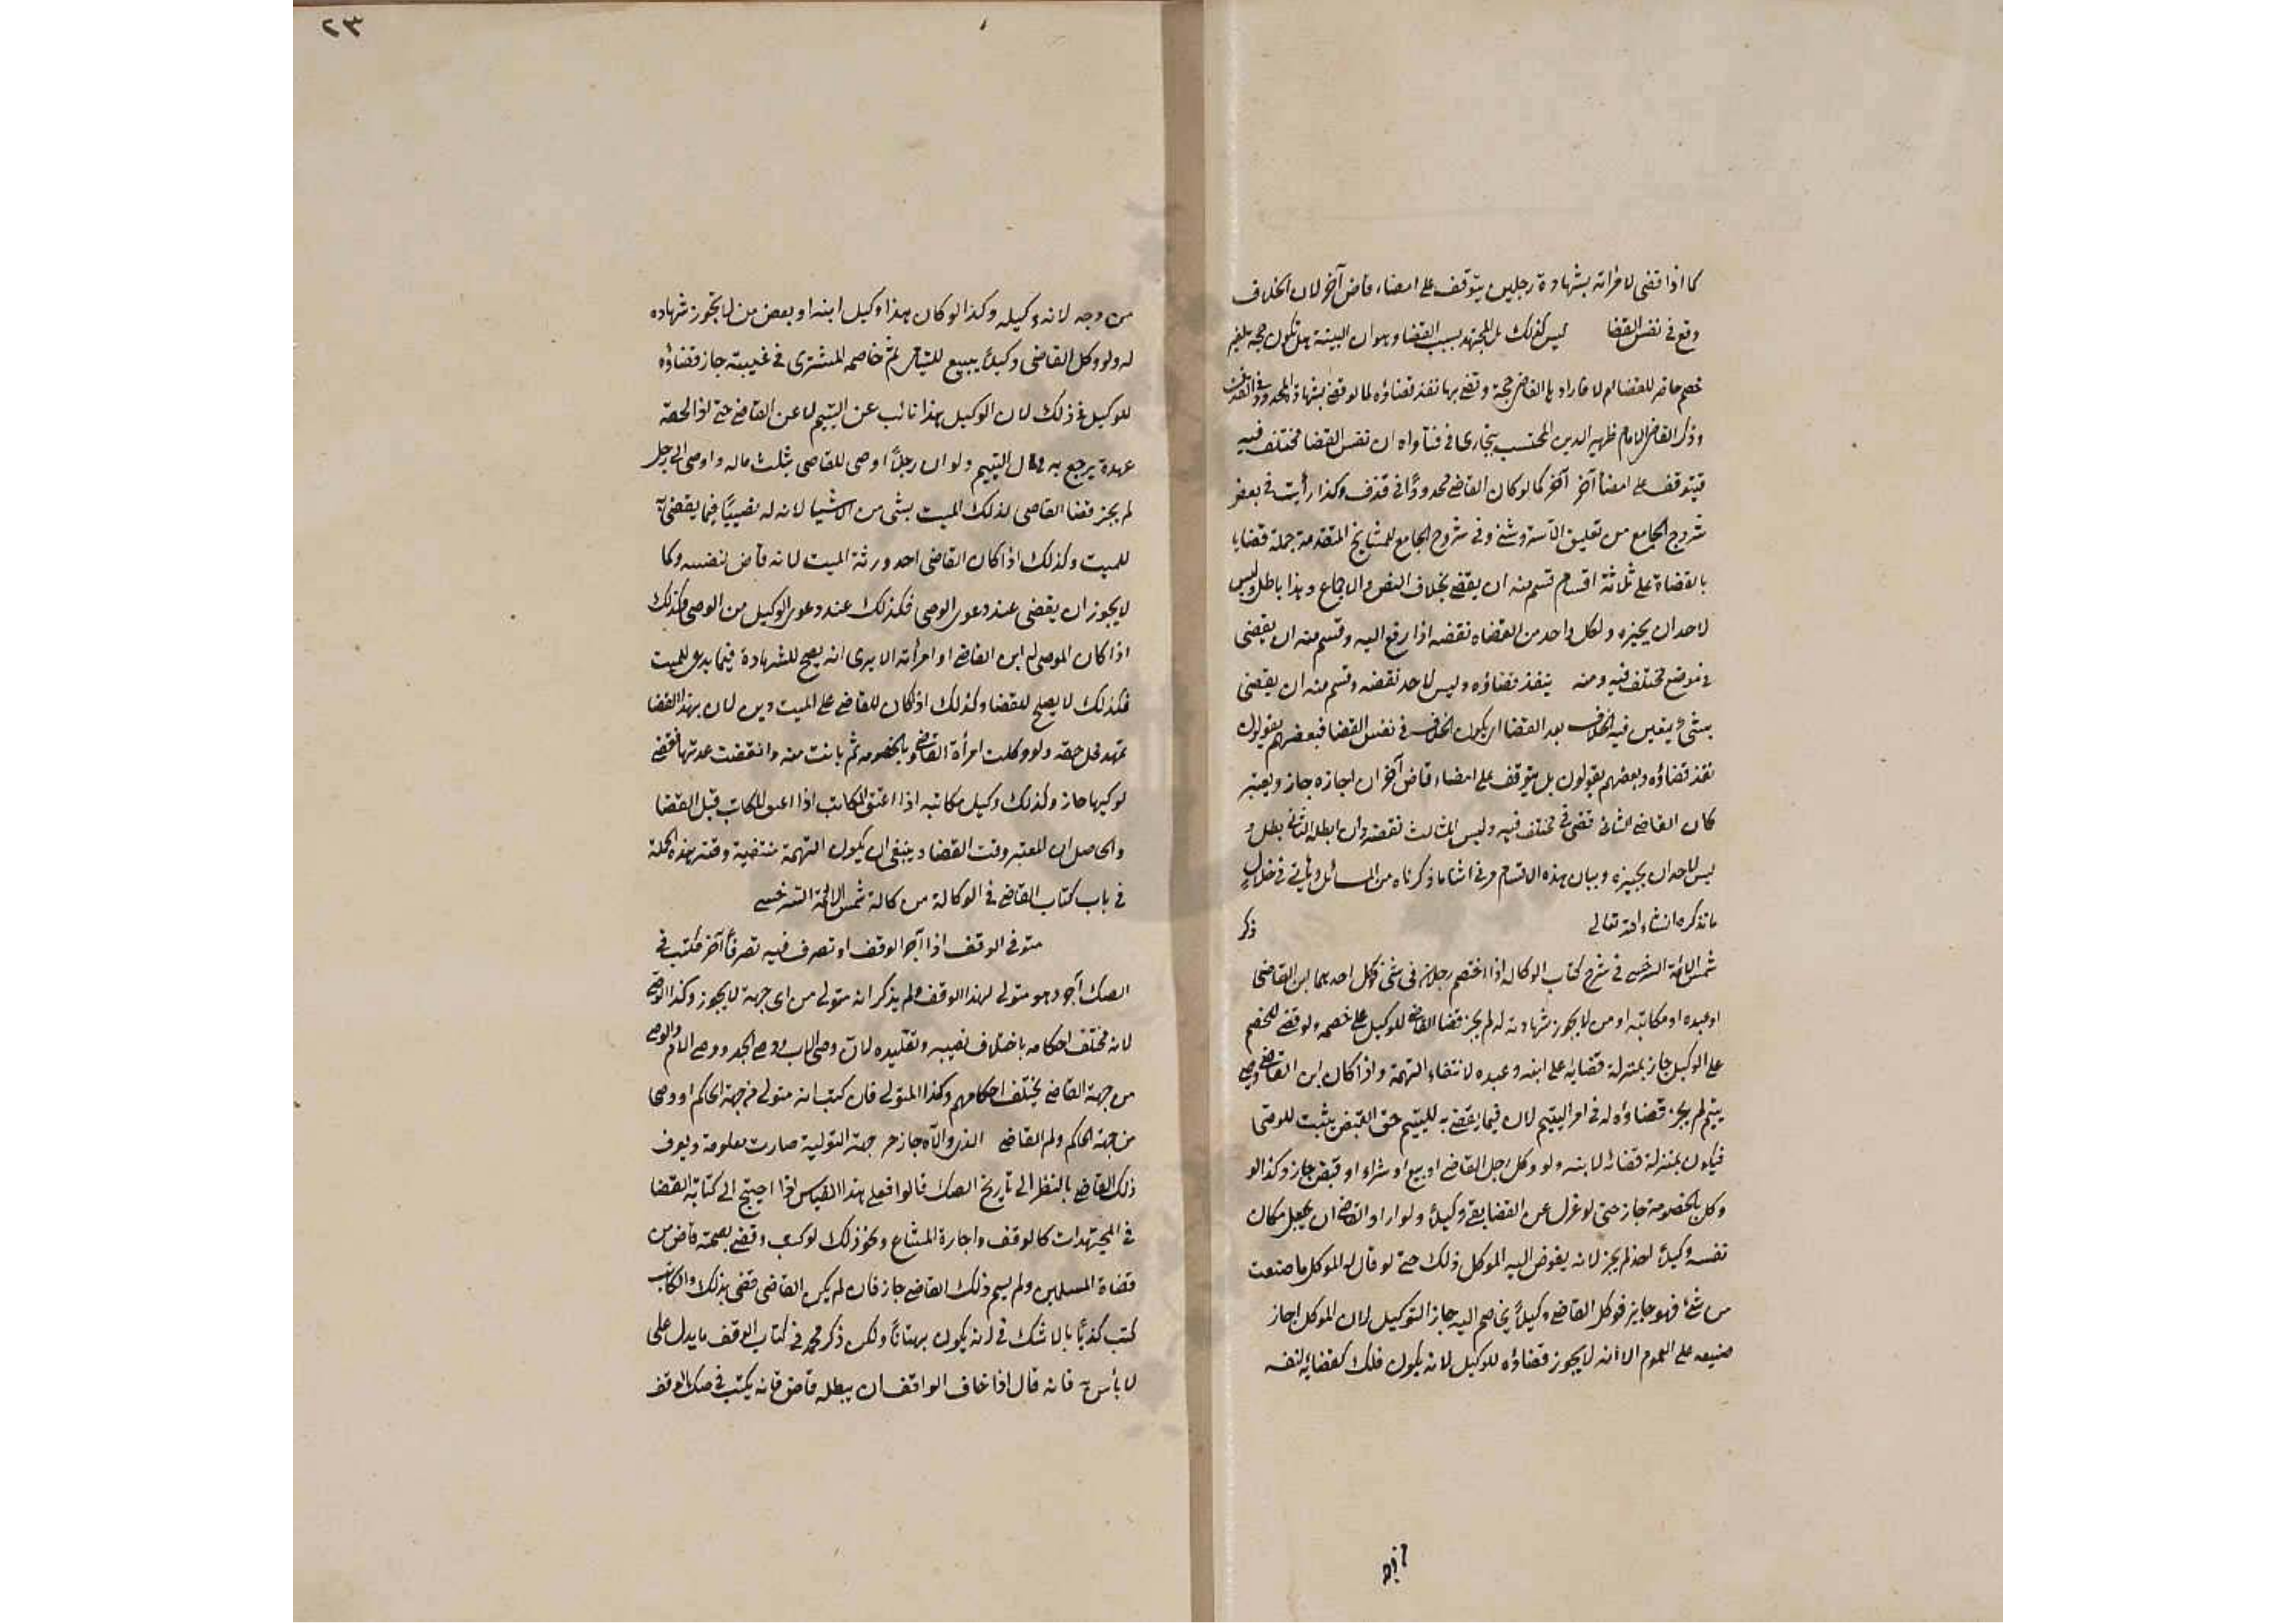 كما اذا قضى لامرأته بشهادة رجلين يتوقف على امضاء قاض آخر لان الخلاف
وقع في نفس القضا ليس كذلك بل المجتهد بسبب القضا وهو ان البينة هل تكون حجة بلغير
خصم حاضر للقضا ام لا فاراد ها القاضي حجة وقضى بها نفذ قضاؤه كما لو قضى بشهادة المحدود في القذف
وذكر القاضي الامام ظهير الدين المحتسب ببخارى في فتاواه ان نفس القضا مختلف فيه
فيتوقف على امضأ آخر كما لو كان القاضي محدودًا في قذف وكذا رأيت في بعض
شروح الجامع من تعليق الأستروشني وفي شروح الجامع للمشايخ المتقدمة جملة قضايا
بالقضاة على ثلاثة اقسام قسم منه ان يقضى بخلاف النص والاجماع وهذا باطل وليس
لاحد ان يجيزه ولكل واحد من القضاه نقضه اذا رفع اليه وقسم منه ان يقضى
في موضع مختلف فيه ومنه ينفذ قضاؤه وليس لاحد نقضه وقسم منه ان يقضى
بشئ يتعين فيه الخلاف بعد القضا اي يكون الخلاف في نفس القضا فبعضهم يقولون
نفذ قضاؤه وبعضهم يقولون بل يتوقف على امضاء قاض آخر ان اجازه جاز ويعتبر
كان القاضي الثاني قضى في مختلف فيه وليس للثالث نقضه وان ابطله الثاني بطل و
ليس لاحد ان يجيزه وبيان هذه الاقسام في اثنا ما ذكرناه من المسائل ويأتي في خلال
ما نذكره ان شاء الله تعالى ذكر
شمس الائمة السرخسي في شرح كتاب الوكالة اذا اختصم رجلان في شئ فوكل احدهما ابن القاضي
او عبده او مكاتبه او من لا يجوز شهادته له لم يجز قضا القاضي للوكيل على خصمه ولو قضى للخصم
على الوكيل جاز بمنزلة قضايه على ابنه وعبده لانتفاء التهمة واذا كان ابن القاضي وصي
يتيم لم يجز قضاؤه له في امر اليتيم لان فيما يقضى به لليتيم حق القبض يثبت للوصي
فيكون بمنزلة قضائه لابنه ولو وكل رجل القاضي او بيع او شراء او قبض جاز وكذا لو
وكل بالخصومة جاز حتى لو عزل عن القضا بقي وكيلاً ولو اراد القاضي ان يجعل مكان
نفسه وكيلاً احد لم يجز لانه يفوض اليه الموكل ذلك حتى لو قال له الموكل ما صنعت
من شئ فهو جايز فوكل القاضي وكيلاً يخاصم اليه جاز التوكيل لان الموكل اجاز
صنيعه على العموم الا انه لا يجوز قضاؤه للوكيل لانه يكون فلك كقضائه لنفسه
من وجه
٢٣
من وجه لانه وكيله وكذا لو كان هذا وكيل ابنه او بعض من لا يجوز شهاده
له ولو وكل القاضي وكيلاً يبيع لليتامى ثم خاصمه المشترى في غيبته جاز قضاؤه
للوكيل في ذلك لان الوكيل هذا نائب عن اليتيم لا عن القاضي حتى لو الحقه
عهدة يرجع به في مال اليتيم ولو ان رجلاً اوصى للقاضي بثلث ماله واوصى الى رجل
لم يجز قضا القاضي لذلك الميت بشئ من الاشيا لانه له نصيبًا فيما يقضى به
للميت وكذلك اذا كان القاضي احد ورثة الميت لانه قاض لنفسه وكما
لا يجوز ان يقضى عند دعوى الوصى فكذلك عند دعوى الوكيل من الوصى وكذلك
اذا كان الموصى له ابن القاضي او امرأته الا يرى انه يصح للشهادة فيما يدعى للميت
فكذلك لا يصلح للقضا وكذلك اذا كان للقاضي على الميت دين لان بهذا القضا
تمهد محل حقه ولو وكلت امرأة القاضي بالخصومه ثم بانت منه وانقضت عدتها فقضى
لوكيلها جاز وكذلك وكيل مكاتبه اذا اعتق المكاتب قبل القضا
والحاصل ان المعتبر وقت القضا وينبغي ان يكون التهمة منتفية وقته بهذه الجملة
في باب كتاب القاضي في الوكالة من كالة شمس الائمة السرخسي
متولى الوقف اذا آجر الوقف او تصرف فيه تصرفًا آخر فكتب في
الصك آجر وهو متولى لهذا الوقف ولم يذكر انه متولى من اى جهة لا يجوز وكذا الوصي
لانه مختلف احكامه باختلاف نصيبه وتقليده لان وصى الاب ووصي الجد ووصي الام والوصي
من جهة القاضي يختلف احكامهم وكذا المتولى فان كتب انه متولى من جهة الحاكم او وصى
من جهة الحاكم ولم القاضي الذي ولاه جاز جهة التولية صارت معلومة ويعرف
ذلك القاضي بالنظر الى تاريخ الصك قالوا فعلى هذا القياس اذا احتيج الى كتابة القضا
في المجتهدات كالوقف واجارة المشاع ونحو ذلك لو كتب وقضى بصحته قاض من
قضاة المسلمين ولم يسم ذلك القاضي جاز فان لم يكن القاضي قضى بذلك والكاتب
كتب كذبًا بالا شك في انه يكون بهتانًا ولكن ذكر محمد في كتاب الوقف ما يدل على
لا بأس به فانه قال اذا خاف الواقف ان يبطله قاض فانه يكتب في صك الوقف